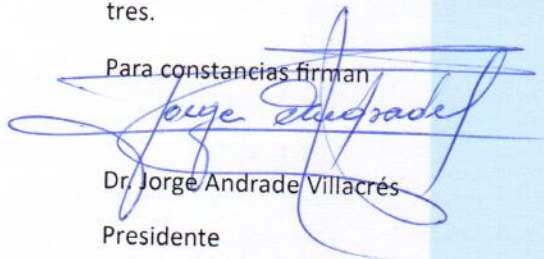 tres.
Para constancias firman
Jorge Andrade
Dr. Jorge Andrade Villacrés
Presidente